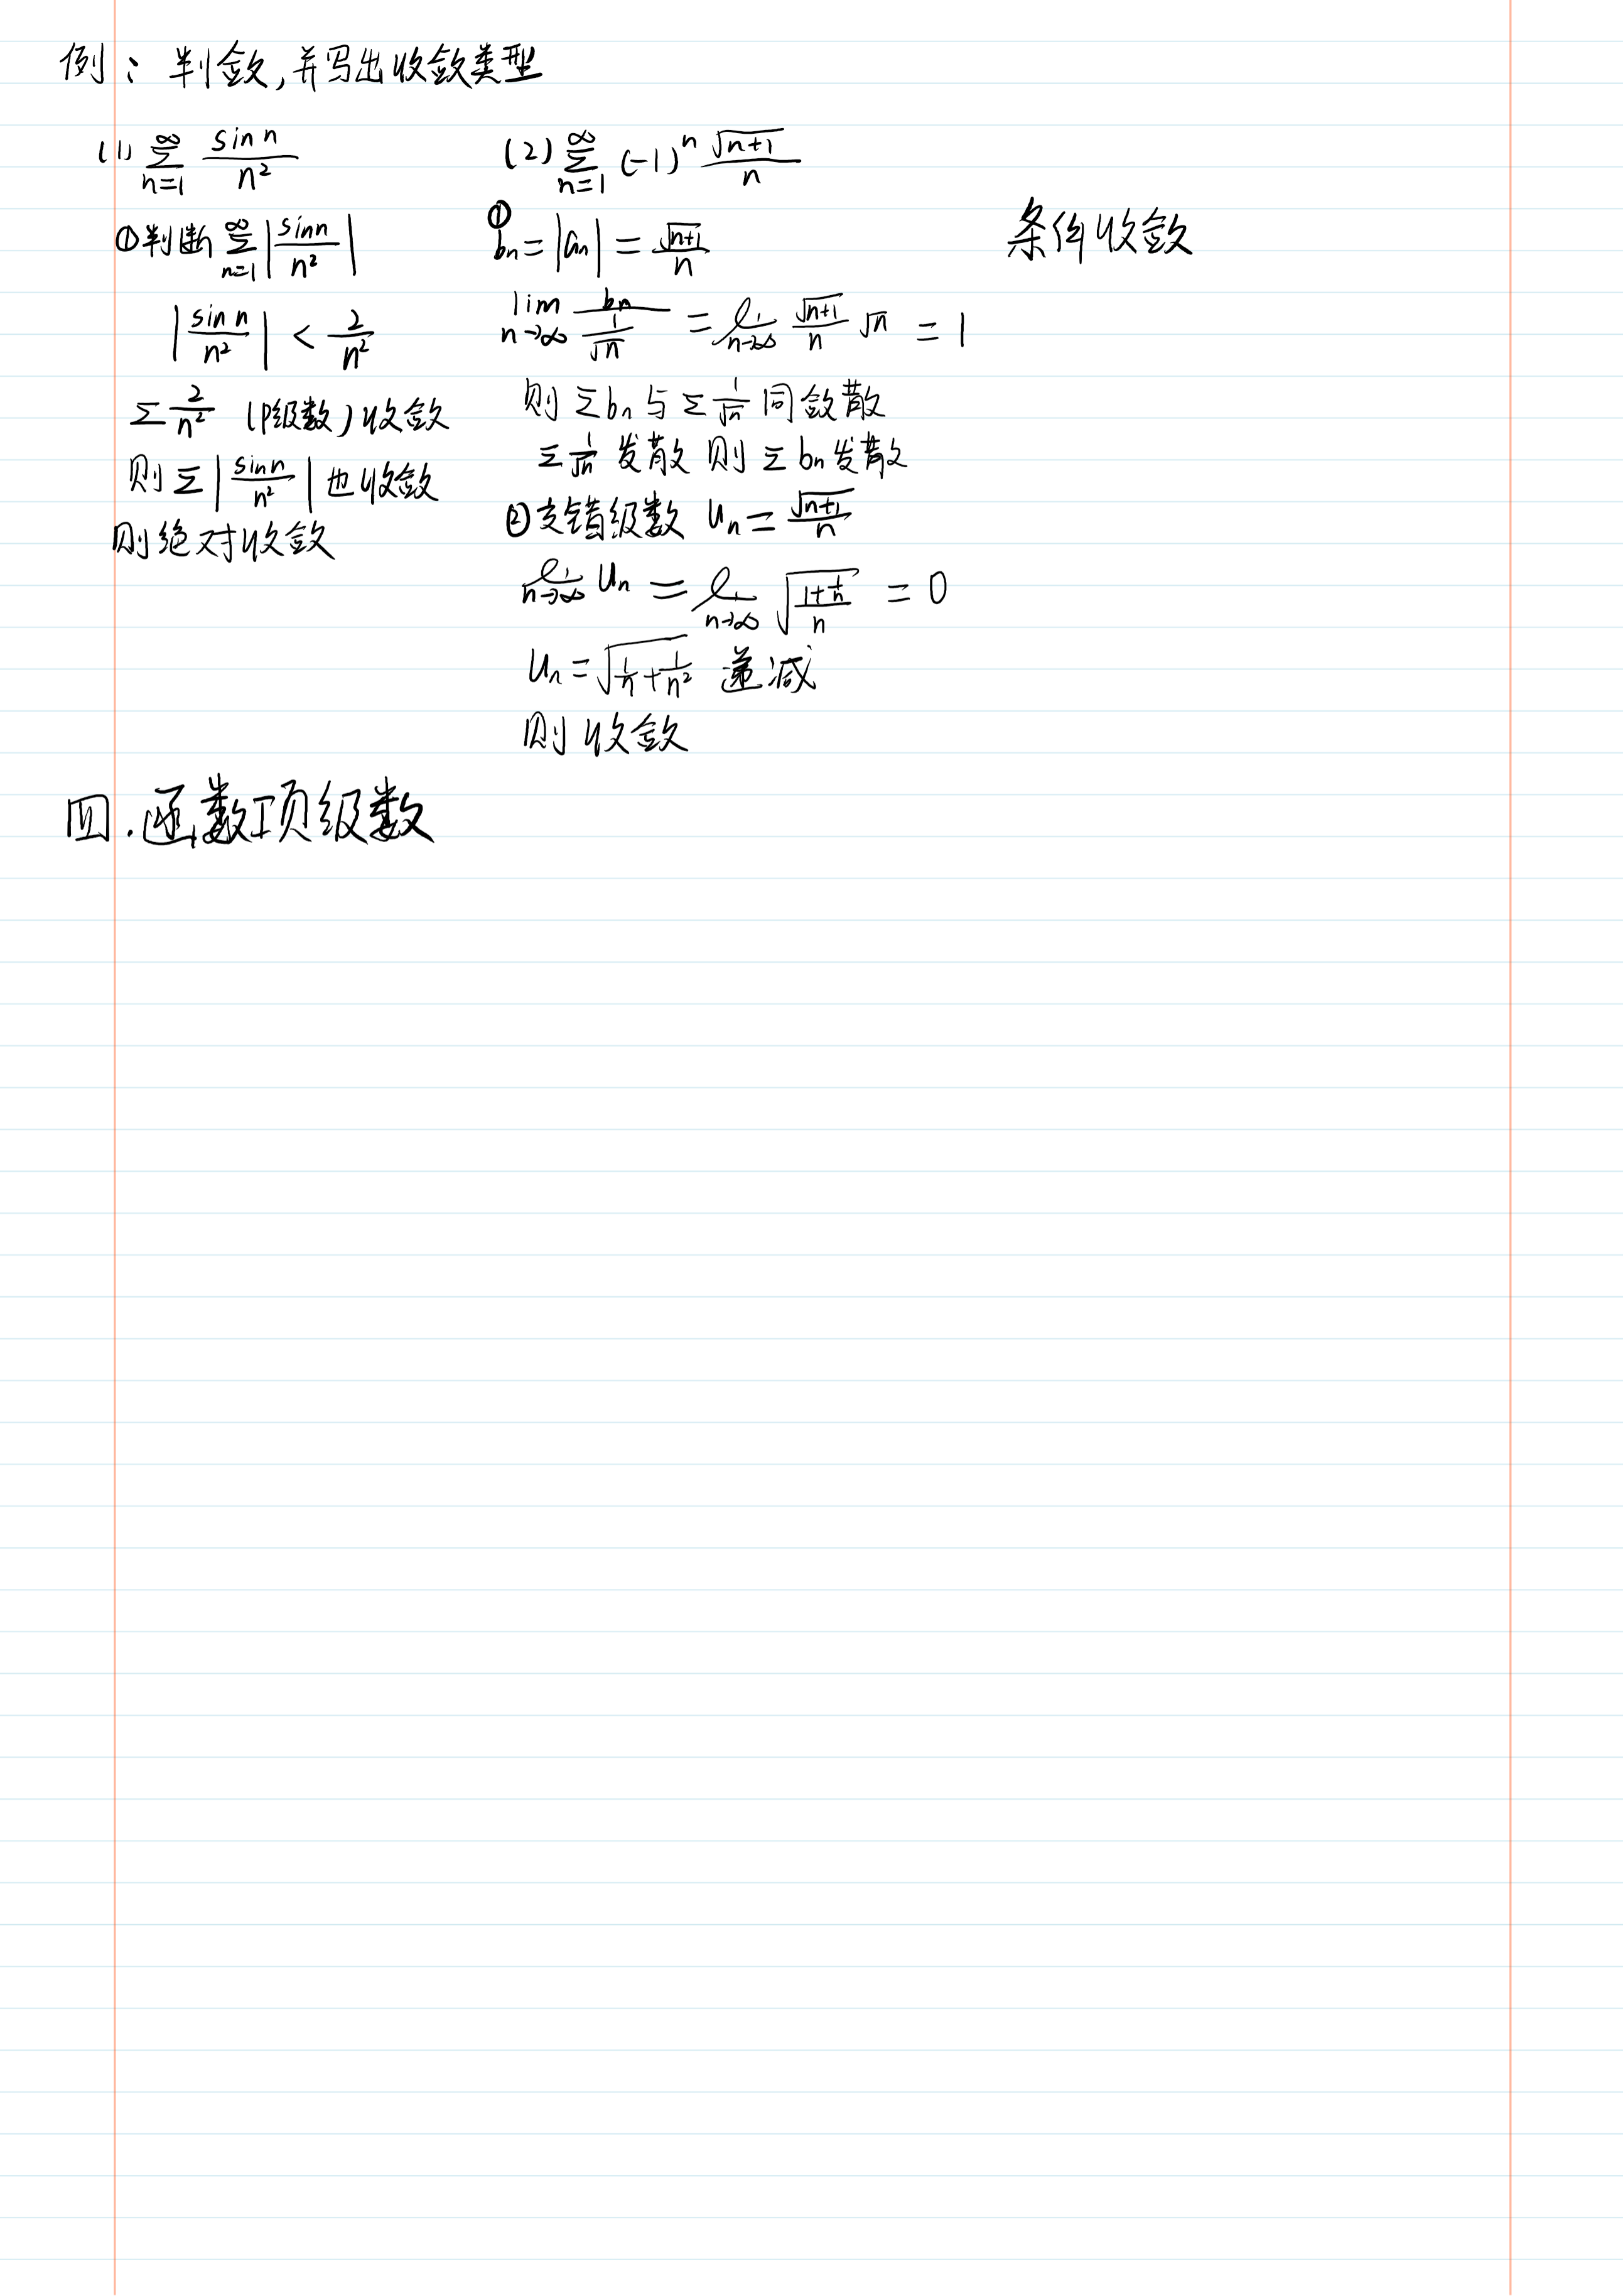 例：判敛,并写出收敛类型
(1) \sum_{n=1}^{\infty} \frac{\sin n}{n^2}
①判断 \sum_{n=1}^{\infty} \left|\frac{\sin n}{n^2}\right|
\left|\frac{\sin n}{n^2}\right| < \frac{2}{n^2}
\sum \frac{2}{n^2} (P级数) 收敛
则 \sum \left|\frac{\sin n}{n^2}\right| 也收敛
则绝对收敛
(2) \sum_{n=1}^{\infty} (-1)^n \frac{\sqrt{n+1}}{n}
① b_n = |a_n| = \frac{\sqrt{n+1}}{n}
\lim_{n \to \infty} \frac{b_n}{\frac{1}{\sqrt{n}}} = \lim_{n \to \infty} \frac{\sqrt{n+1}}{n} \sqrt{n} = 1
则 \sum b_n 与 \sum \frac{1}{\sqrt{n}} 同敛散
\sum \frac{1}{\sqrt{n}} 发散 则 \sum b_n 发散
②交错级数 u_n = \frac{\sqrt{n+1}}{n}
\lim_{n \to \infty} u_n = \lim_{n \to \infty} \sqrt{\frac{1+\frac{1}{n}}{n}} = 0
u_n = \sqrt{\frac{1}{n} + \frac{1}{n^2}} 递减
则收敛
条件收敛
四.函数项级数